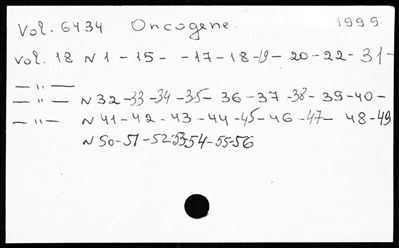 Vol. 6434 Oncogene. 1999
Vol. 18 N 1 - 15 - - 17 - 18 - 19 - 20 - 22 - 31 -
— " —
— " — N 32 - 33 - 34 - 35 - 36 - 37 - 38 - 39 - 40 -
— " — N 41 - 42 - 43 - 44 - 45 - 46 - 47 - 48 - 49
N 50 - 51 - 52 - 53 - 54 - 55 - 56